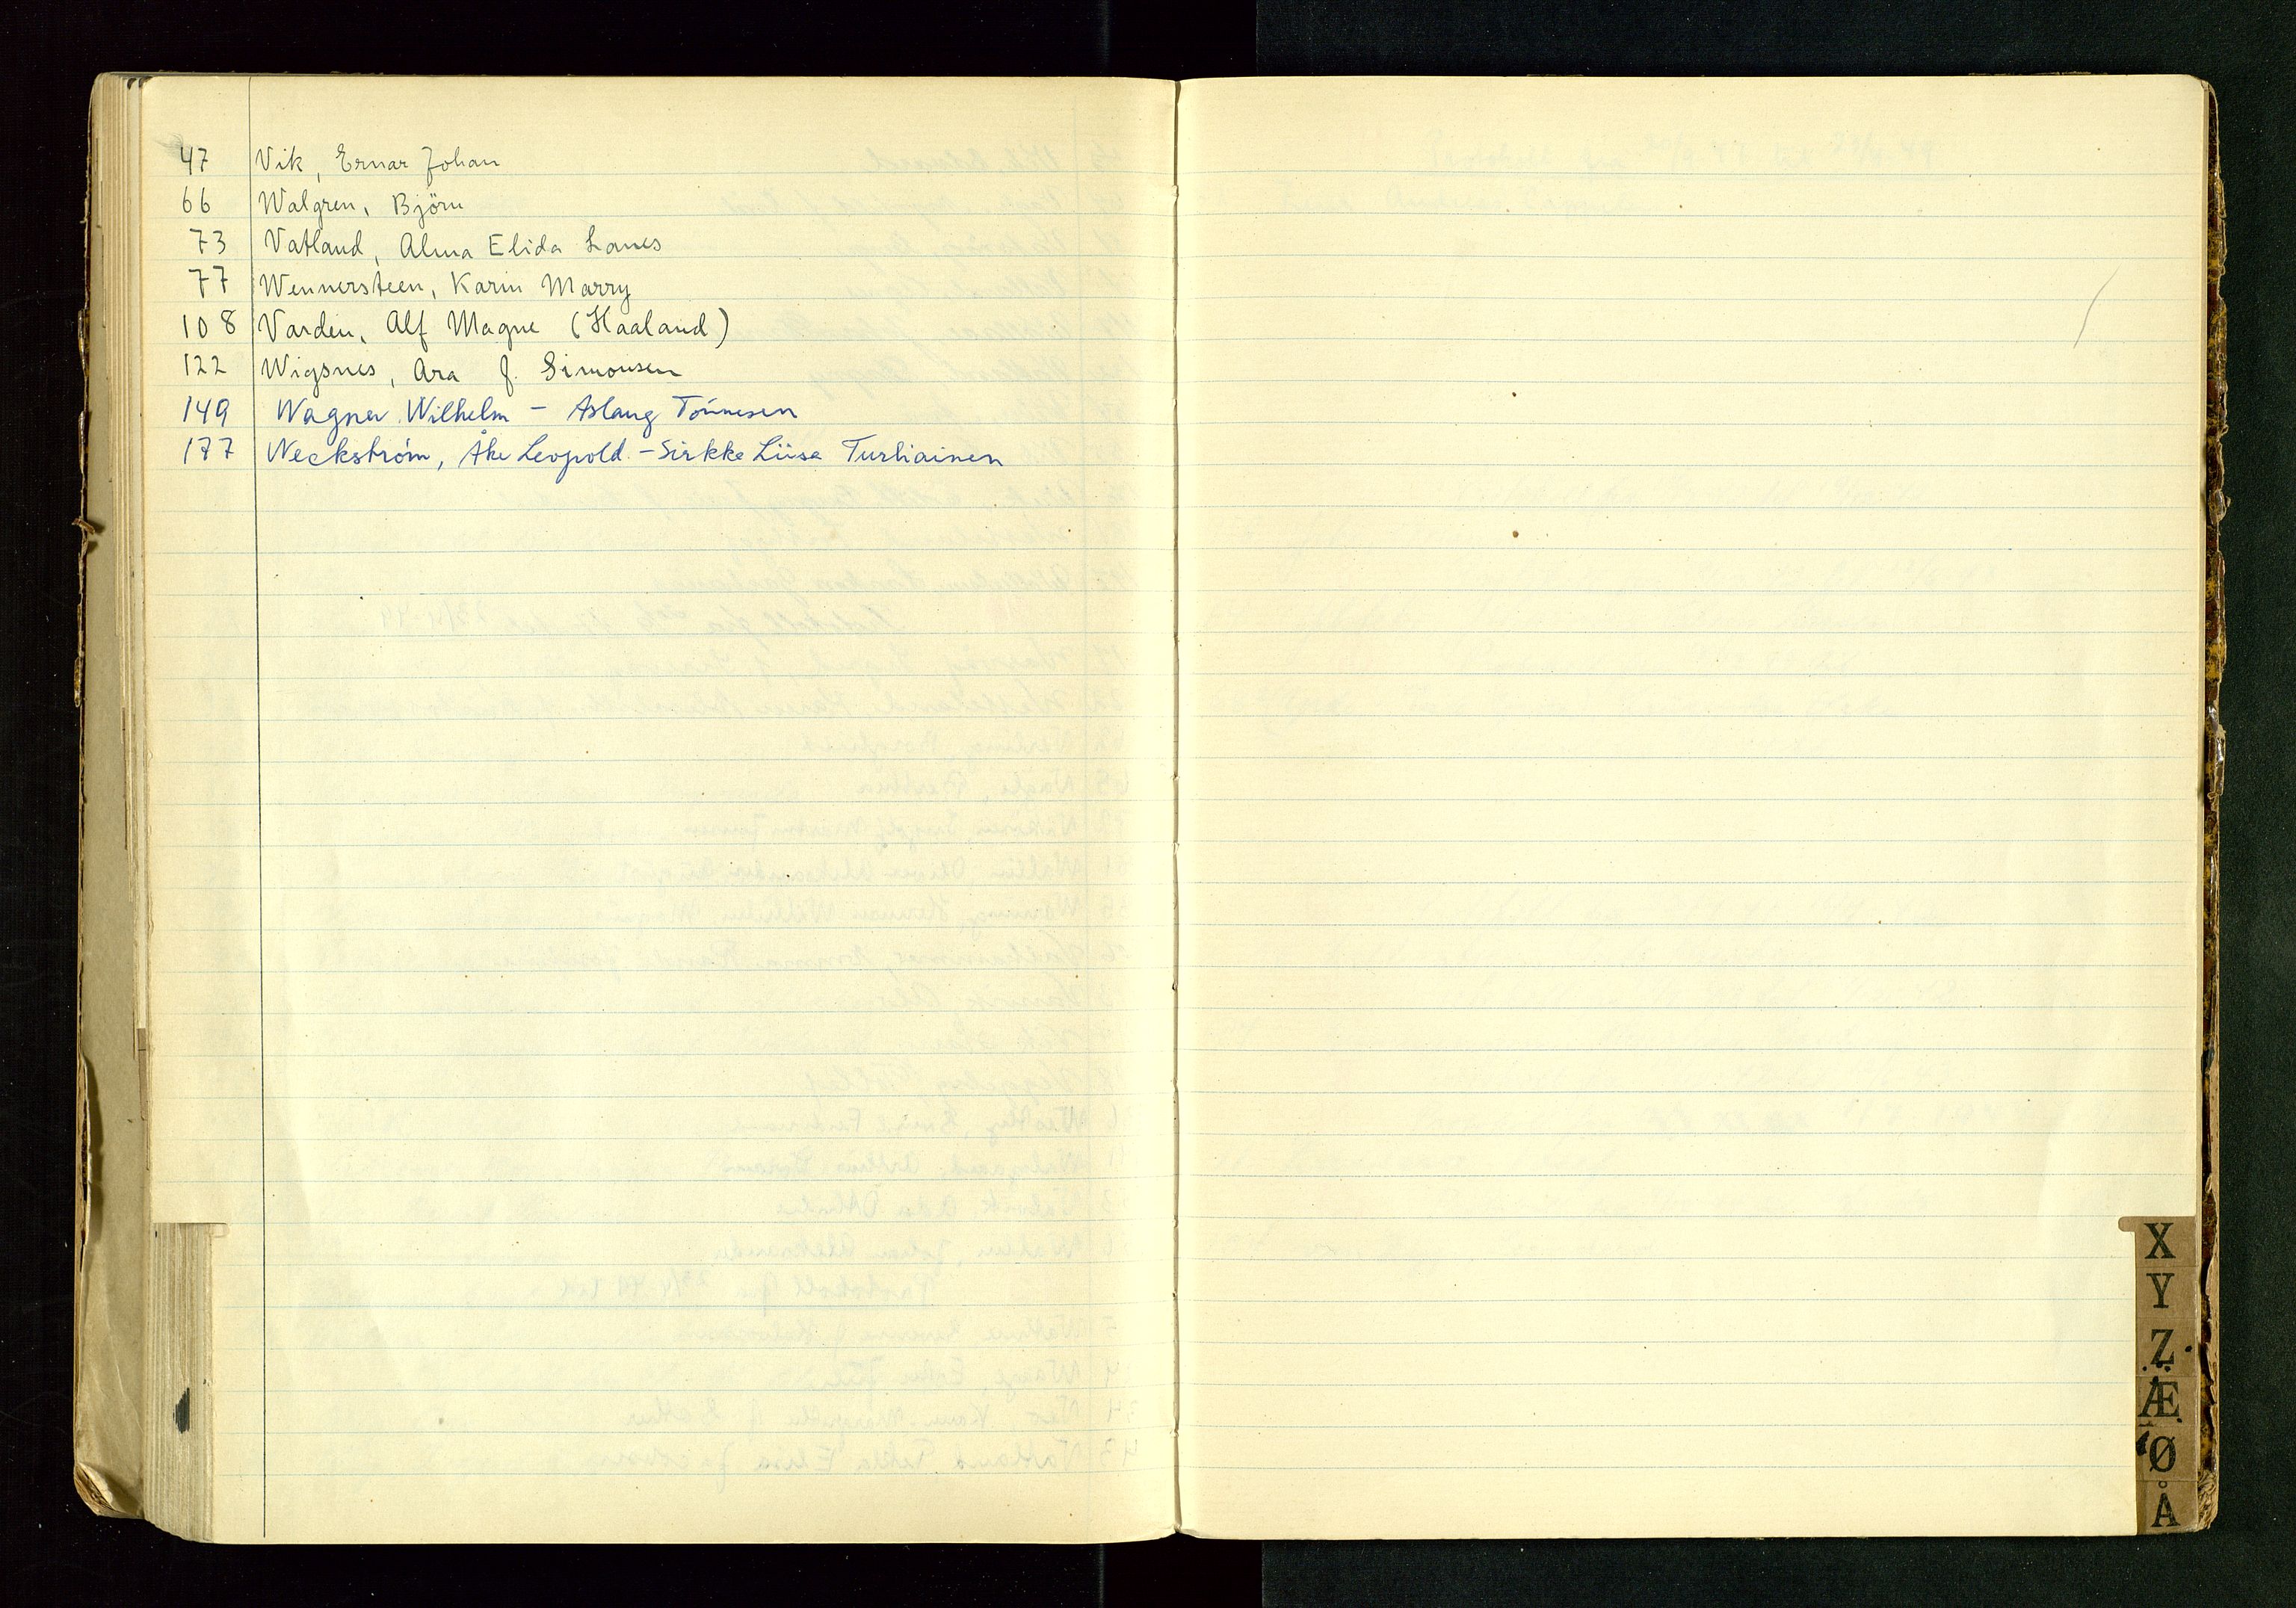 47 Vik, Ernar Johan
66 Walgren, Björn
73 Vatland, Alma Elida Lanes
77 Wennersteen, Karin Marry
108 Varden, Alf Magne (Haaland)
122 Wigsnes, Ara f. Simonsen
149 Wagner Wilhelm - Aslaug Tönnesen
177 Weckström, Åke Leopold - Sirkke Liisa Turhiainen
X
Y
Z
Æ
Ø
Å